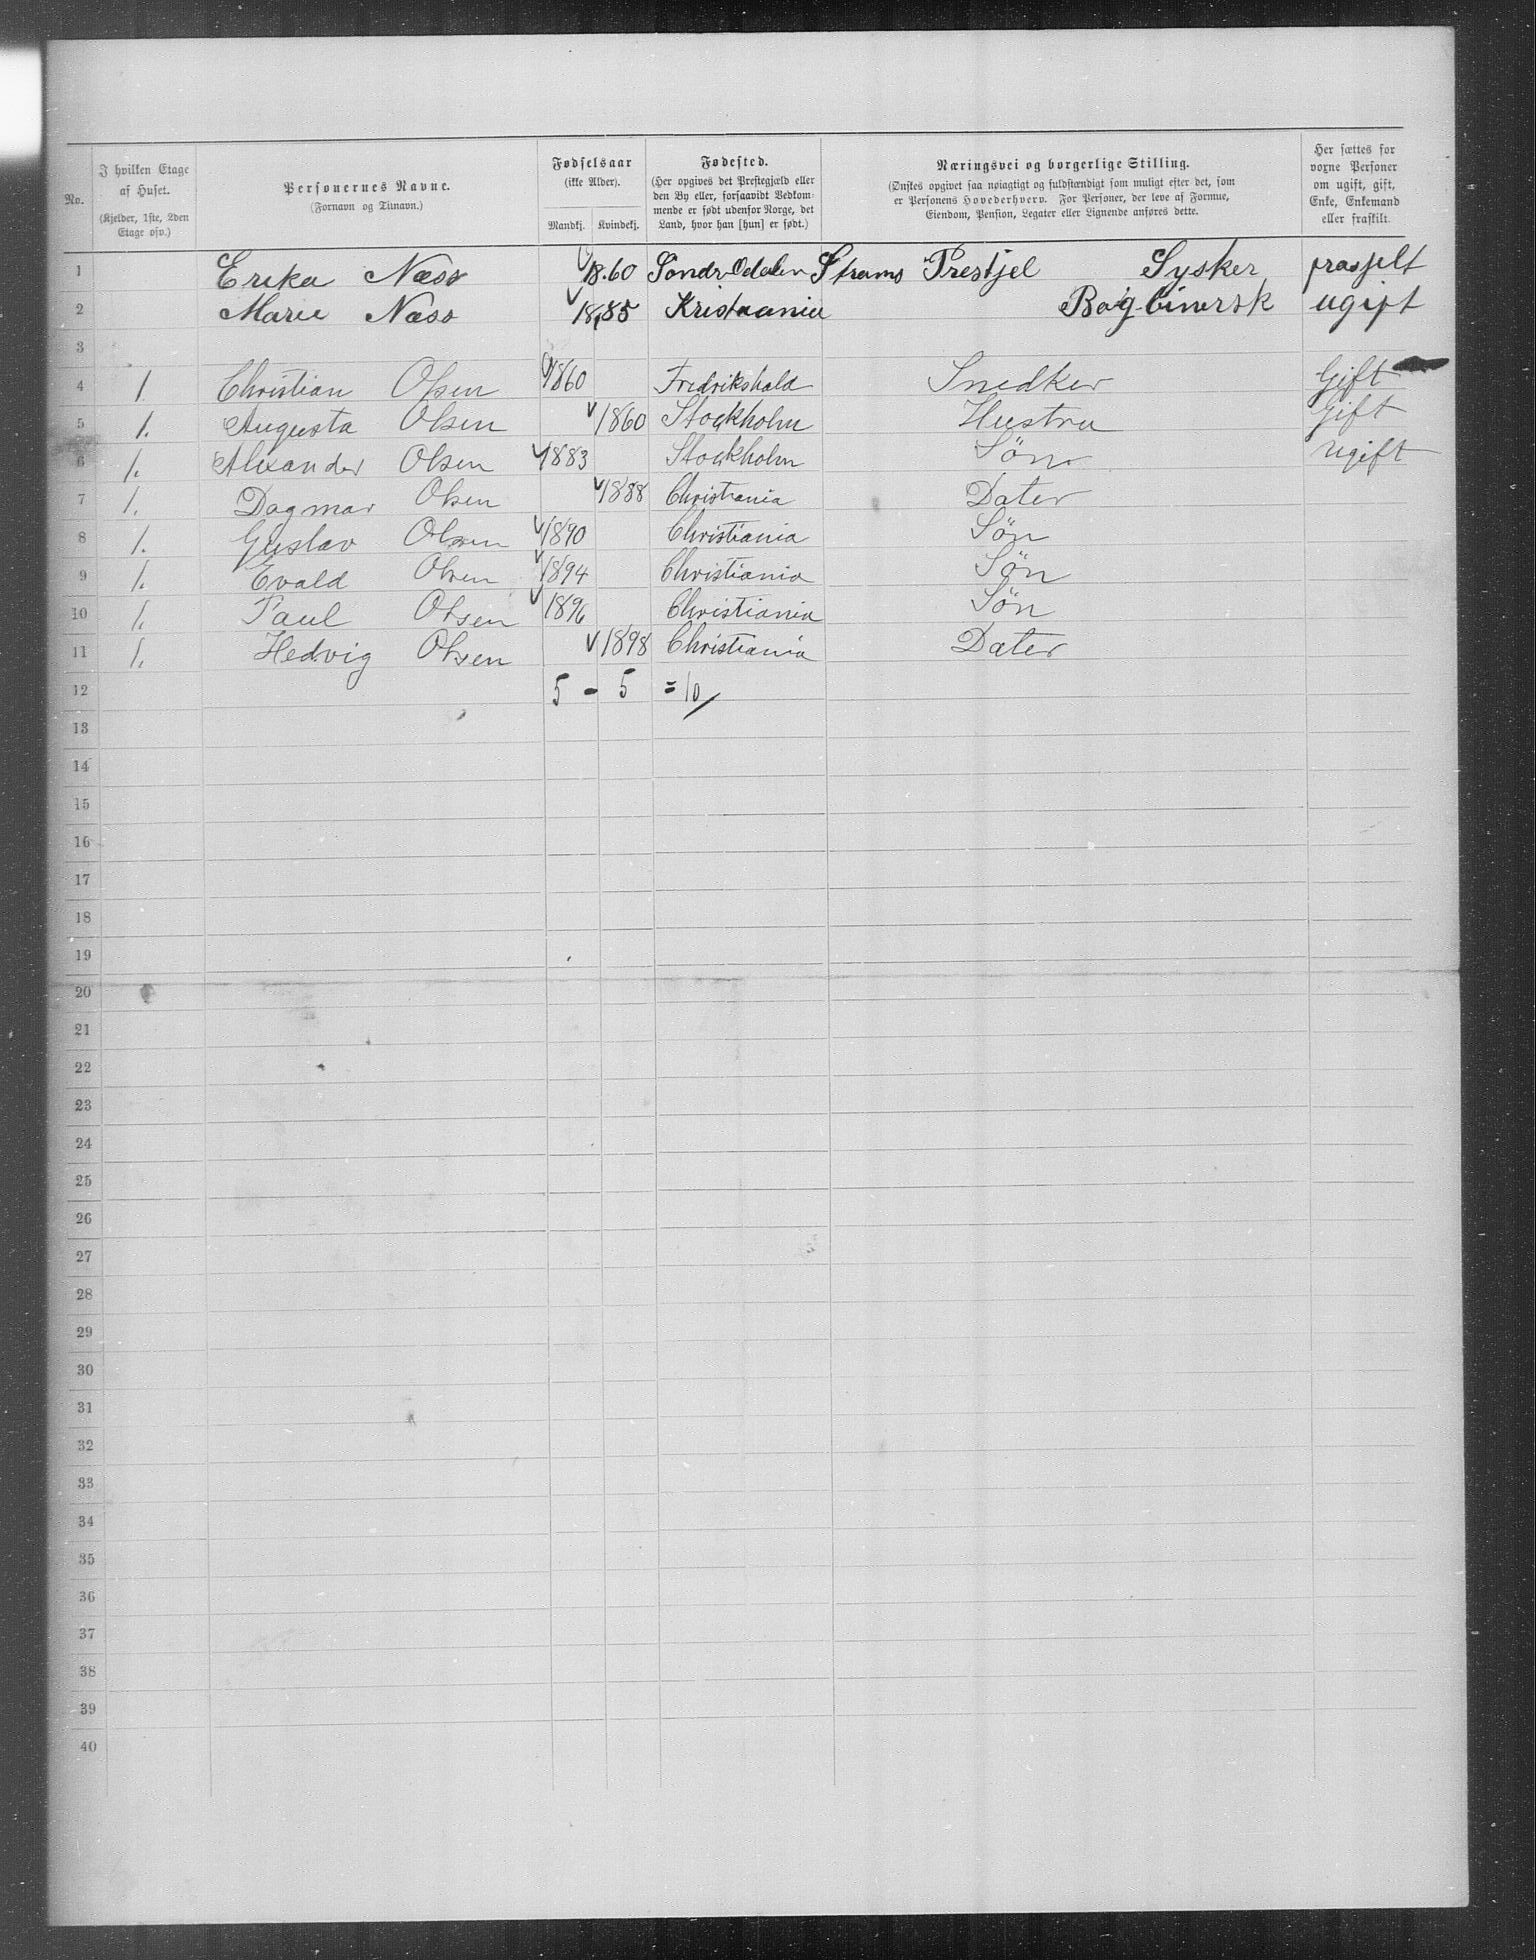 No.
I hvilken Etage af Huset.
(Kjelder, 1ste, 2den Etage osv.)
Personernes Navne.
(Fornavn og Tilnavn.)
Fødselsaar
(ikke Alder).
Mandkj. Kvindekj.
Fødested.
(Her opgives det Prestegjæld eller den By eller, forsaavidt Vedkommende er født udenfor Norge, det Land, hvor han [hun] er født.)
Næringsvei og borgerlige Stilling.
(Ønskes opgivet saa nøiagtigt og fuldstændigt som muligt efter det, som er Personens Hovederhverv. For Personer, der leve af Formue, Eiendom, Pension, Legater eller Lignende anføres dette.
Her sættes for vorne Personer om ugift, gift, Enke, Enkemand eller fraskilt.
1 Erika Næss 18.60 Söndr-Odalen Strams Prestjel Sysker
2 Marie Næss 18,85 Kristaania ugift
3
4 1 Christian Olsen 1860 Fredrikshald Snedker Gift
5 1. Augusta Olsen 1860 Stockholm Hustru Gift
6 1. Alexander Olsen 1883 Stockholm Søn Ugift
7 1. Dagmar Olsen 1888 Christiania Dater
8 1. Gustav Olsen 1890 Christiania Søn
9 1. Evald Olsen 1894 Christiania Søn
10 1. Paul Olsen 1896 Christiania Søn
11 1. Hedvig Olsen 1898 Christiania Dater
12 5 - 5 = 10
13
14
15
16
17
18
19
20
21
22
23
24
25
26
27
28
29
30
31
32
33
34
35
36
37
38
39
40